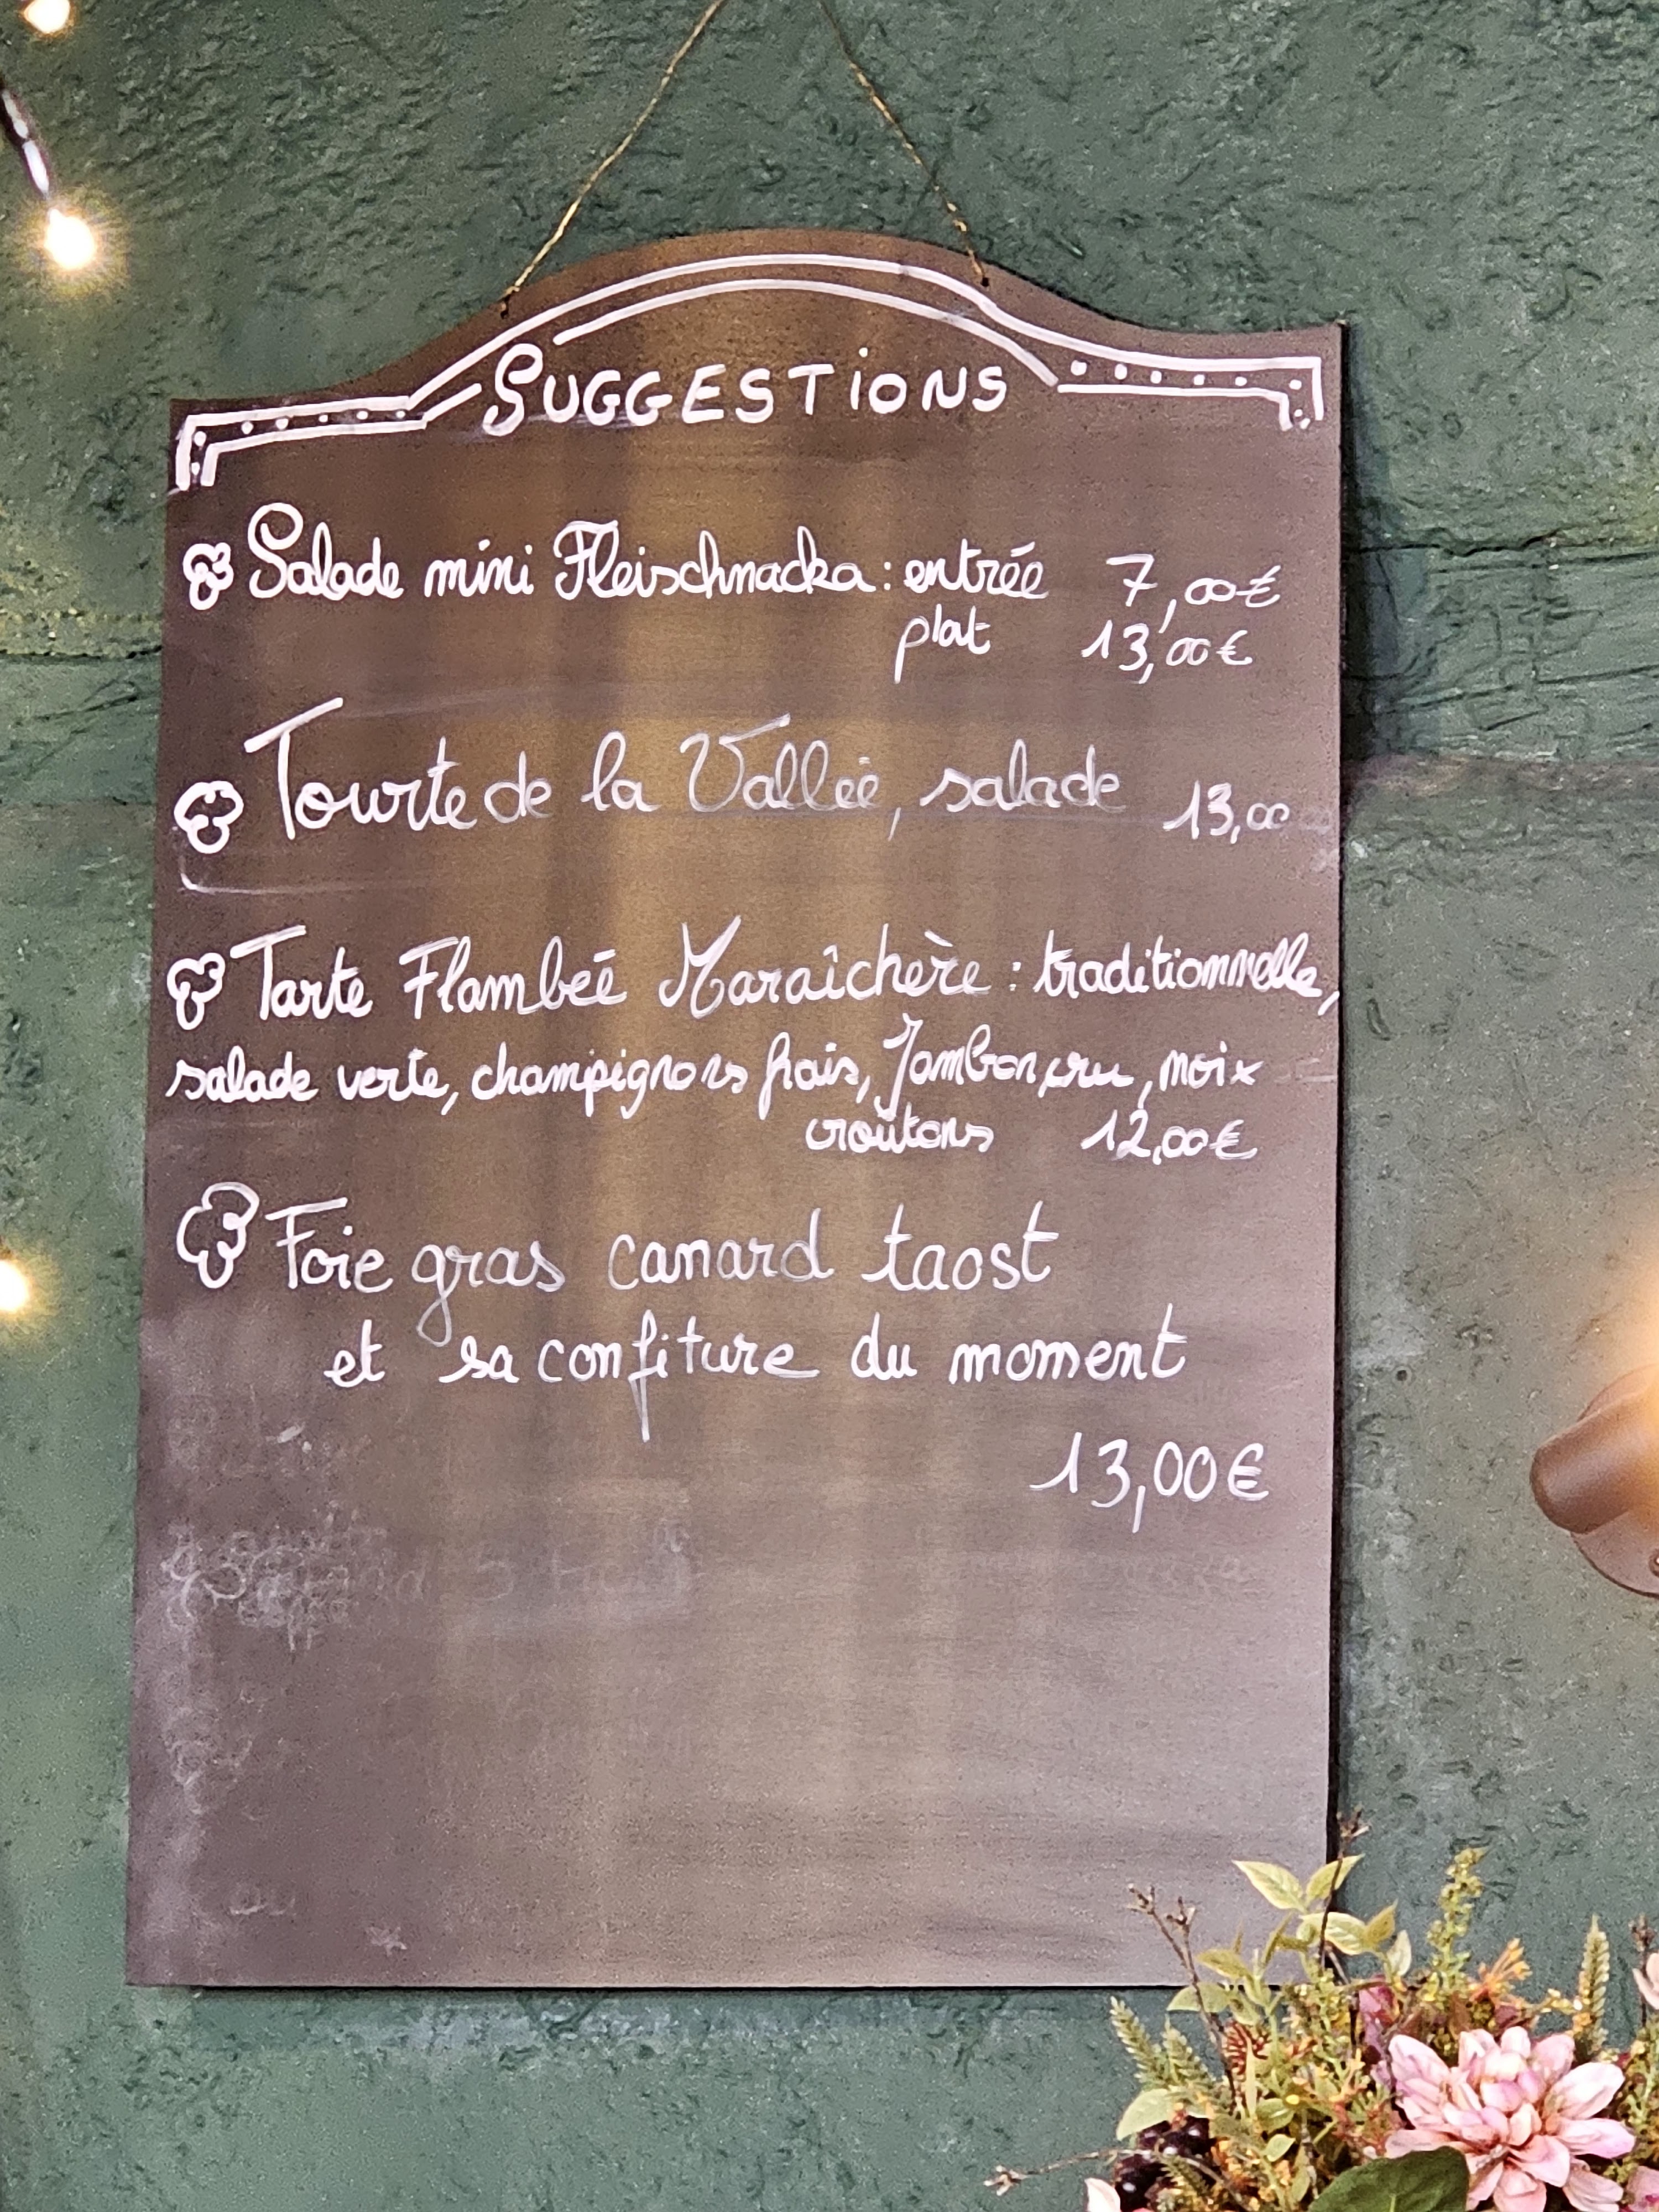 SUGGESTIONS
Salade mini Fleischnacka : entrée 7,00€
plat 13,00€
Tourte de la Vallée, salade 13,00
Tarte Flambée Maraîchère : traditionnelle,
salade verte, champignons frais, Jambon cru, noix
croûtons 12,00€
Foie gras canard taost
et sa confiture du moment
13,00€